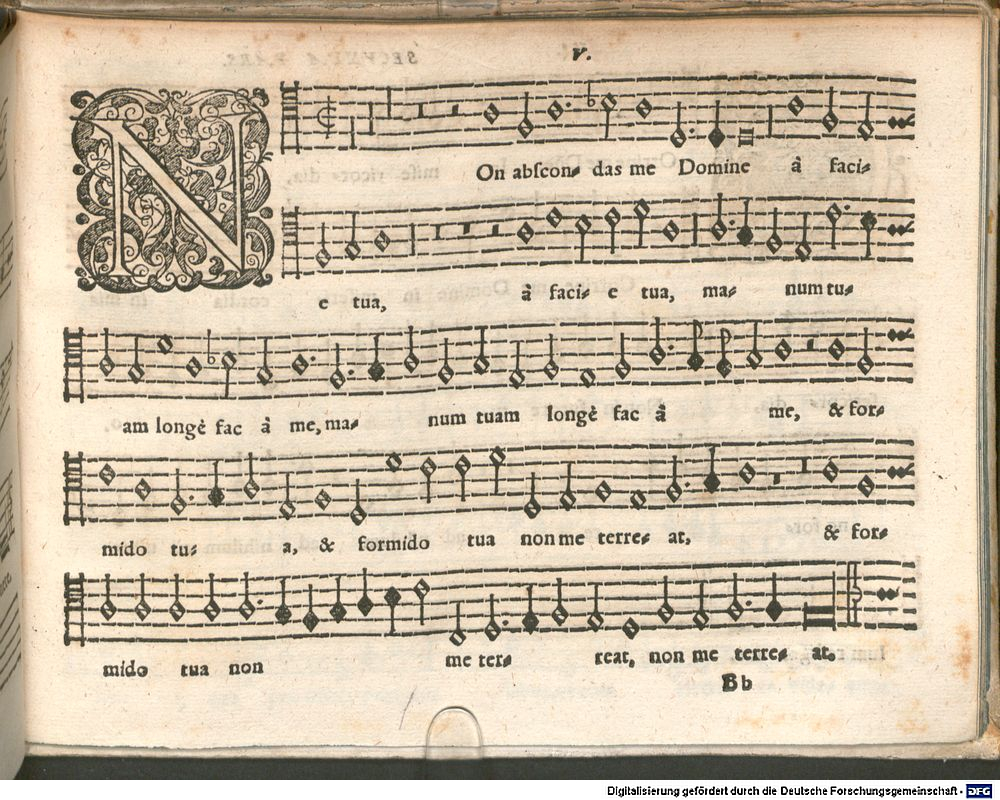 V.
N
On abſcon⸗ das me Domine à faci⸗
e tua, à faci⸗ e tua, ma⸗ num tu⸗
am longè fac à me, ma⸗ num tuam longè fac à me, & for⸗
mido tu⸗ a, & formido tua non me terre⸗ at, & for⸗
mido tua non me ter⸗ reat, non me terre⸗ at.
B b
Digitalisierung gefördert durch die Deutsche Forschungsgemeinschaft - DFG